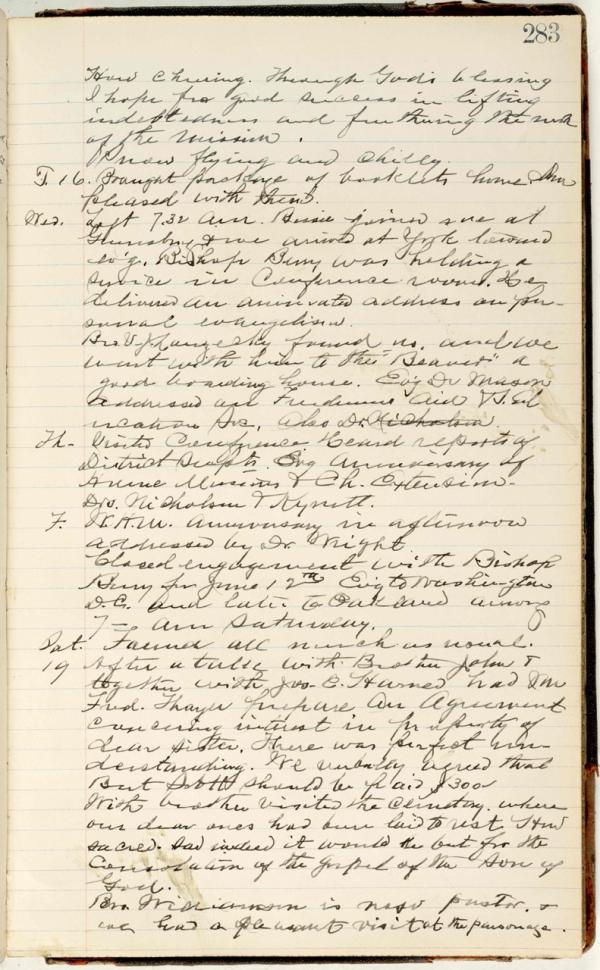 283
How cheering. Through God's blessing
I hope for good success in lifting
indebtedness and furthering the work
of the Mission.
Snow flying and chilly.
T. 16. Brought package of booklets home. Am
pleased with them.
Wed. Left 7.32 a.m. Bessie joined me at
& we arrived at York toward
ev'g. Bishop Berry was holding a
service in Conference room. He
delivered an animated address on per-
sonal evangelism.
Bro V. J. found us, and we
went with him to the "Beaver" a
good boarding house. Ev'g Dr Mason
addressed an Freedmens Aid & S. Ed
ucation Soc, also Dr. Nicholson
Th- Visited Conference Heard reports of
District Supts. Evg Anniversary of
Home Missions & Ch. Extension.
Drs. Nicholson & Kynett.
F. W.H.M. anniversary in afternoon
addressed by Dr. Wright
Closed engagement with Bishop
Berry for June 12th Evg to Washington
D.C. and later to Oakland arriving
7- am Saturday.
Sat. Found all much as usual.
19 After a talk with Brother John &
together with Jos. E. Harned had Mr
Fred. Thayer prepare an Agreement
concerning interest in property of
dear sister. There was perfect un-
derstanding. We verbally agreed that
Bert Scott should be paid $300
With brother visited the Cemetery, where
our dear ones had been laid to rest. How
sacred. Sad indeed it would be but for the
Consolation of the Gospel of the Son of
God.
Bro. Williamson is now pastor. &
we had a pleasant visit at the parsonage.